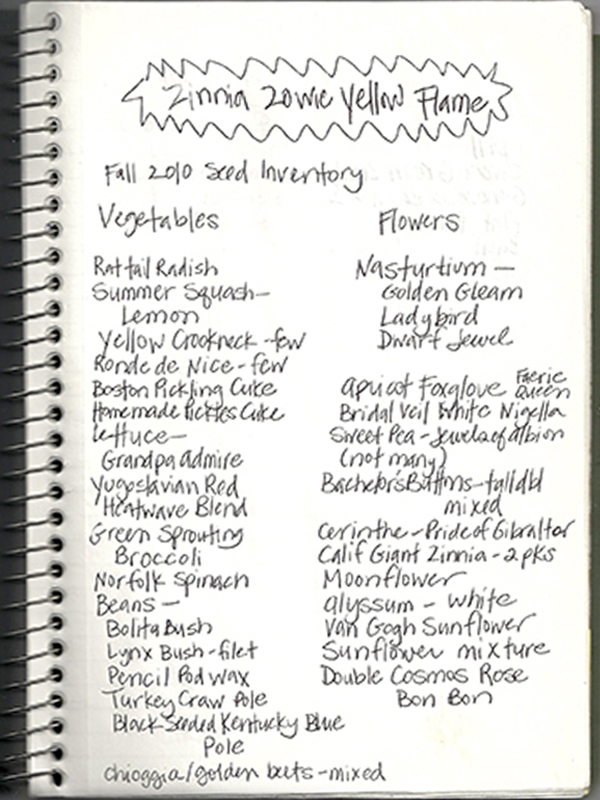 Zinnia Zowie Yellow Flame
Fall 2010 Seed Inventory
Vegetables
Rattail Radish
Summer Squash—
Lemon
Yellow Crookneck - few
Ronde de Nice - few
Boston Pickling Cuke
Homemade Pickles Cuke
Lettuce—
Grandpa Admire
Yugoslavian Red
Heatwave Blend
Green Sprouting
Broccoli
Norfolk Spinach
Beans —
Bolita Bush
Lynx Bush - filet
Pencil Pod wax
Turkey Craw Pole
Black Seeded Kentucky Blue
Pole
Chioggia/golden beets - mixed
Flowers
Nasturtium —
Golden Gleam
Ladybird
Dwarf Jewel
Apricot Foxglove Faerie
Queen
Bridal Veil White Nigella
Sweet Pea - Jewels of Albion
(not many)
Bachelor's Buttons - tall dbl
mixed
Cerinthe - Pride of Gibraltar
Calif Giant Zinnia - 2 pks
Moonflower
Alyssum - white
Van Gogh Sunflower
Sunflower mixture
Double Cosmos Rose
Bon Bon